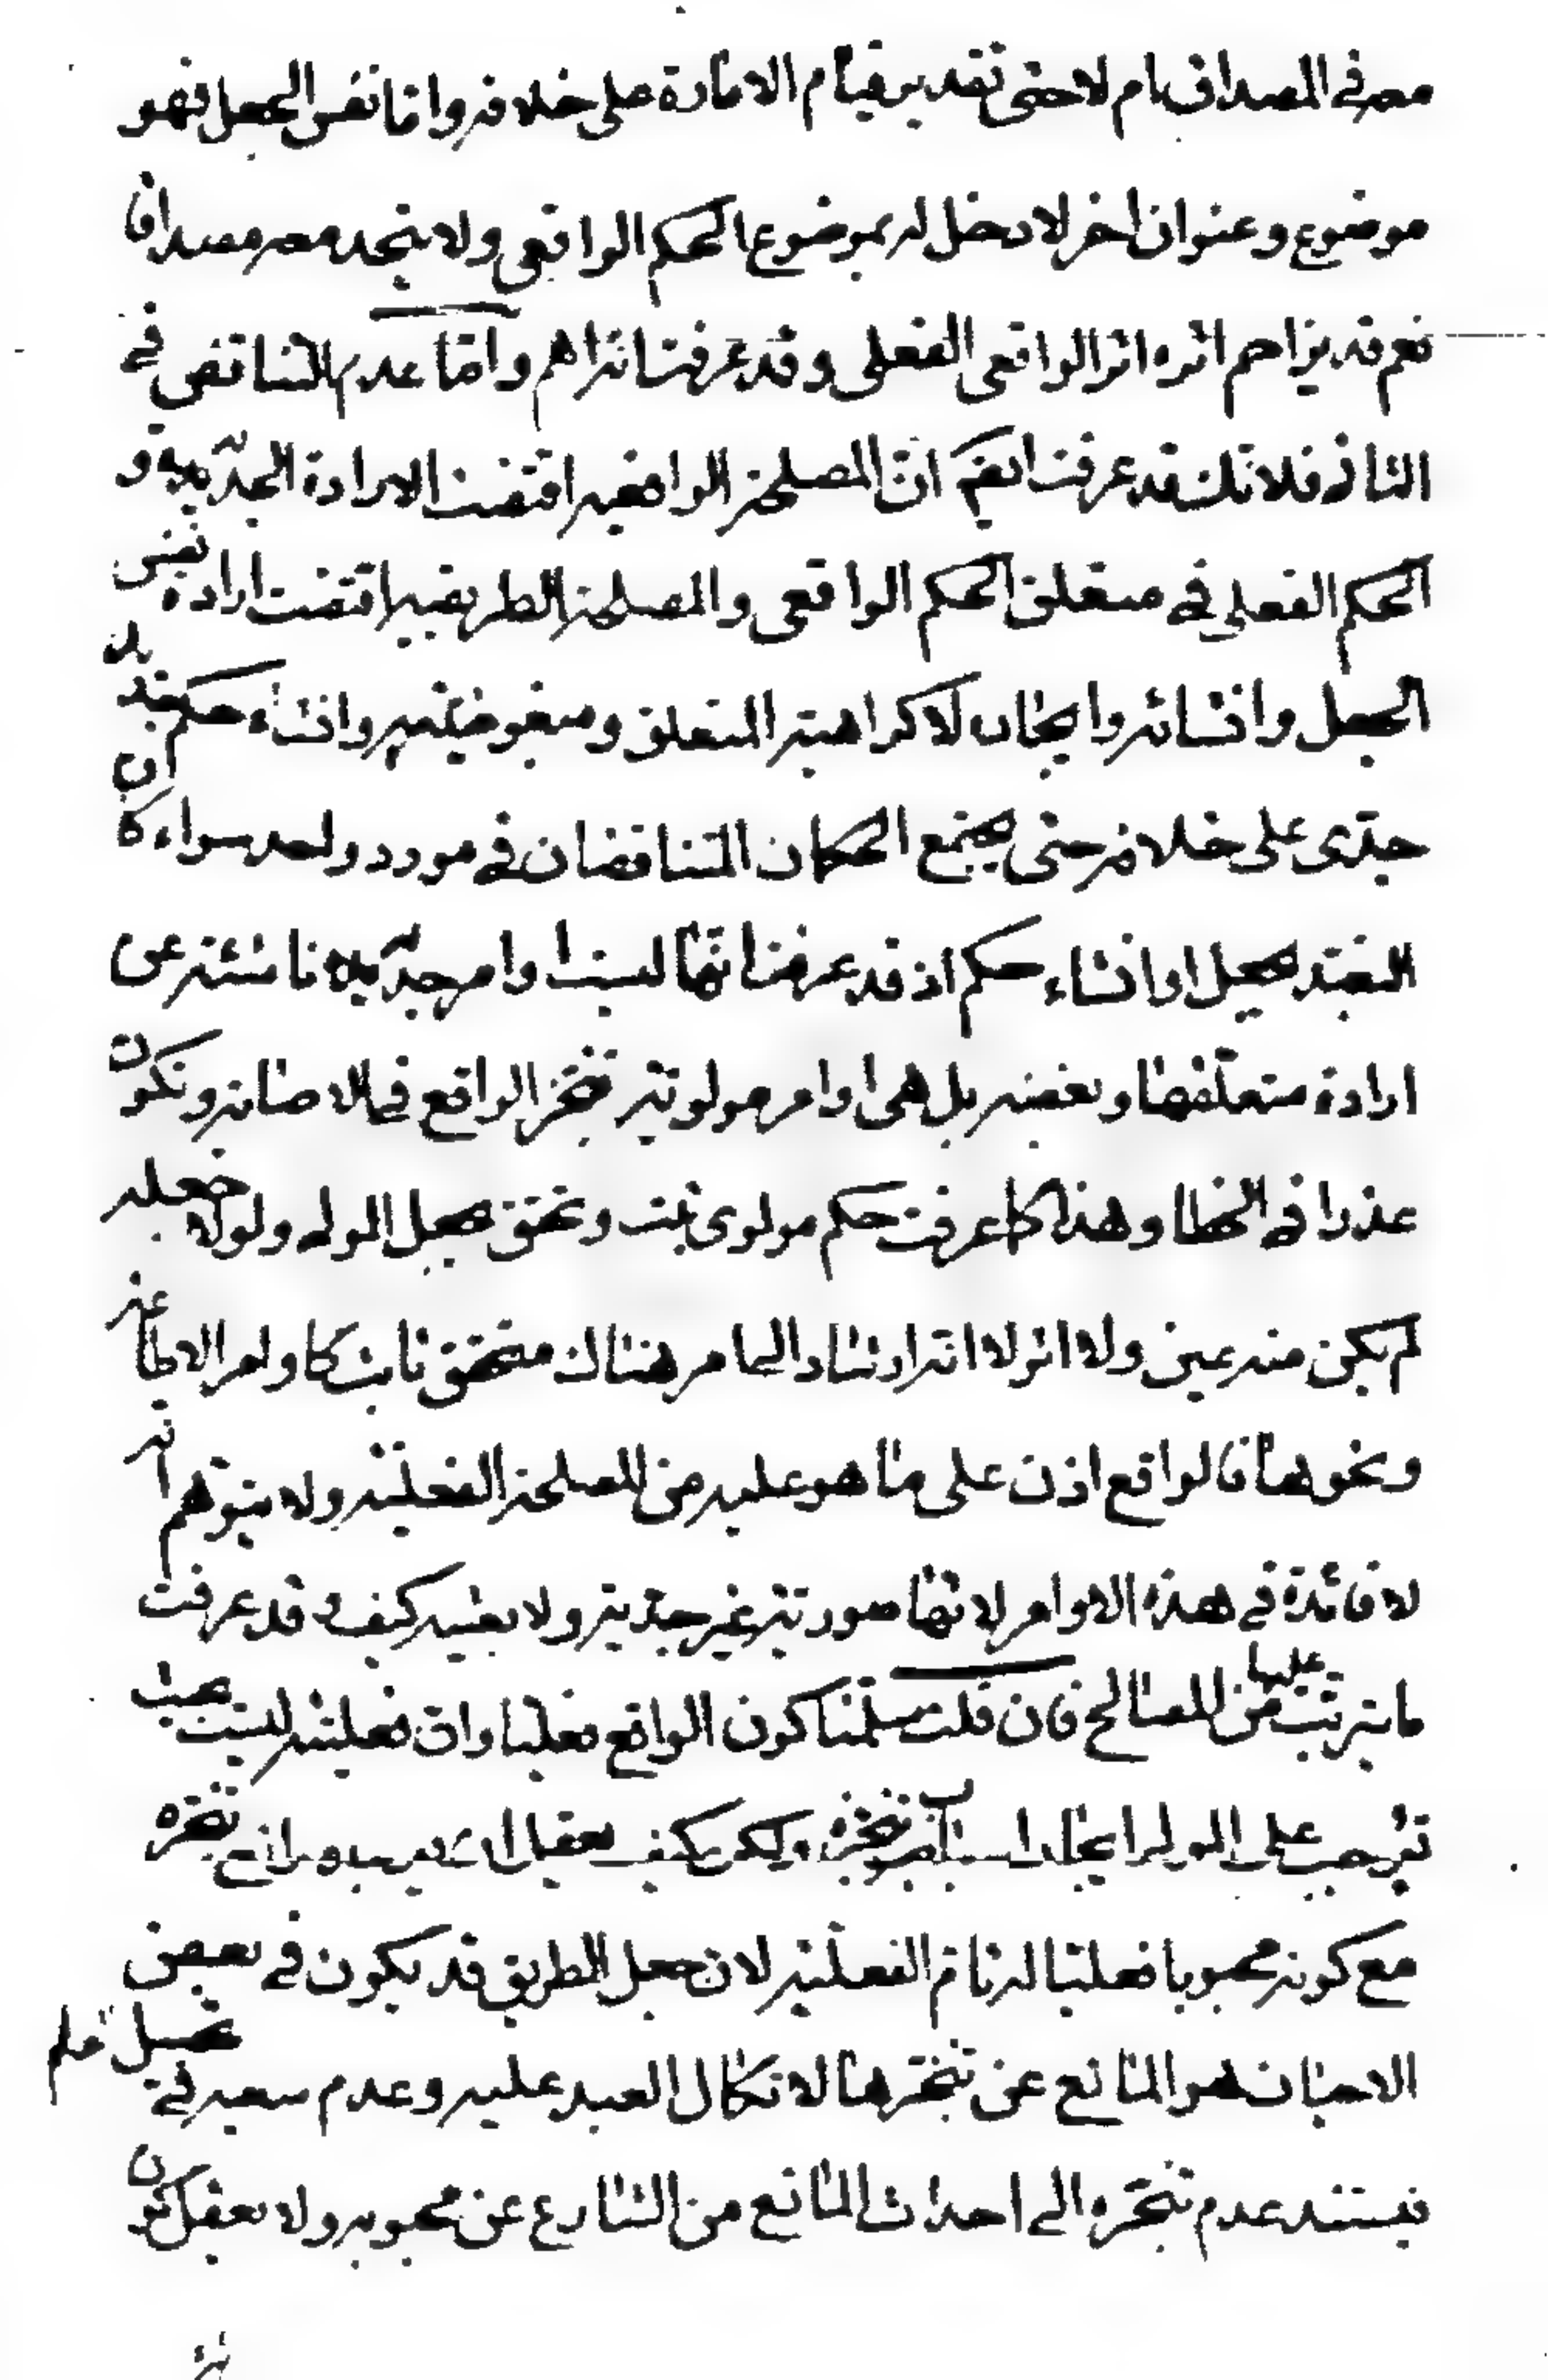 معه في المصداق ام لا حتى تقدير قيام الامارة على خلافه واما نفس الجعل فهو
موضوع وعنوان اخر لا دخل له بموضوع الحكم الواقعي ولا يتحد معه مصداقا
نعم قد يزاحم اثره اثر الواقعي الفعلي وقد عرفت انتزاهم واما عدم التناقض في
الثاني فلانك قد عرفت ايضا ان المصلحة الواقعية اقتضت الارادة الجدية و
الحكم الفعلي في متعلق الحكم الواقعي والمصلحة الطريقية اقتضت ارادة نفس
الجعل وانشائه وايجاده لا كراهية المتعلق ومبغوضيته وانشاء حكم جدي
جدى على خلافه حتى يجتمع الحكمان المتناقضان في مورد واحد سواء كان
التعبد بجعل او انشاء حكم اذ قد عرفت انها ليست اوامر جدية ناشئة عن
ارادة متعلقها وبغضه بل هى اوامر مولوية تنجز الواقع في الاصابة وتكون
عذرا في الخطا وهذا كما عرفت حكم مولوى ثبت وتحقق بجعل المولى ولولا جعله
لم يكن منه عين ولا اثر لا انه ارشاد الى امر هناك متحقق ثابت كاوامر الاطاعة
ونحوها فالواقع اذن على ما هو عليه من المصلحة الفعلية ولا يتوهم انه
لا فائدة في هذه الاوامر لانها صورية غير جدية ولا بعثية كيف وقد عرفت
ما يترتب عليها من المصالح فان قلت سلمنا كون الواقع فعليا وان فعليته ليست بحيث
توجب على المولى ايجاد اسباب تنجزه ولكن كيف يعقل ان تنجزه
مع كونه محبوبا فعليا له تام الفعلية لان جعل الطريق قد يكون في بعض
الاحيان هو المانع عن تنجزها لاتكال العبد عليه وعدم سعيه في تحصيل علم
فيستند عدم تنجزه الى احداث المانع من الشارع عن محبوبه ولا يعقل كون